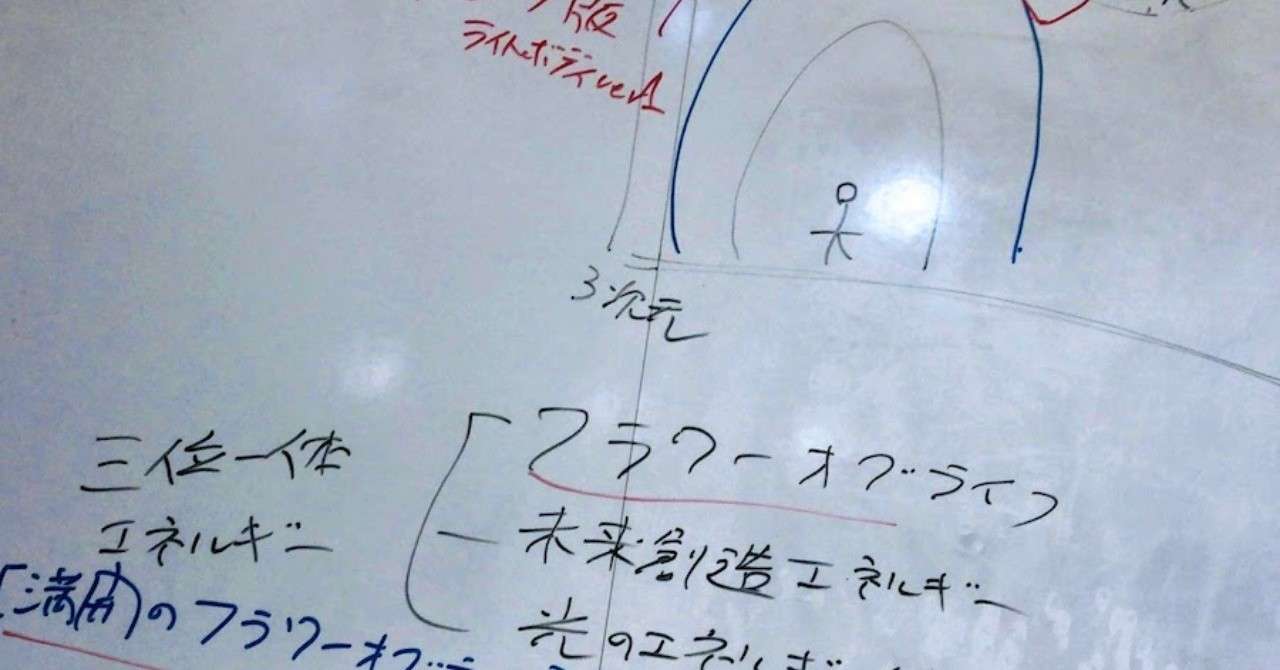 版
ライトボディver1
3次元
三位一体
エネルギー
フラワーオブライフ
未来創造エネルギー
光のエネルギー
「満月のフラワーオブラ